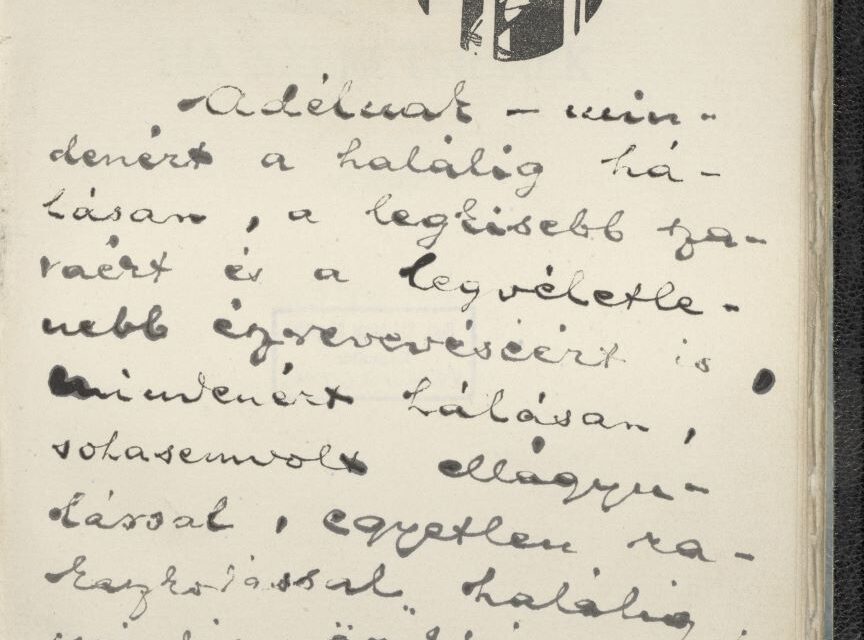 Adélnak – min-
denért a halálig há-
lásan, a legkisebb sza-
vaért és a legvéletle-
nebb észrevevéséért is
mindenért hálásan,
sohasemvolt ellágyu-
lással, egyetlen ra-
kaszkodással halálig